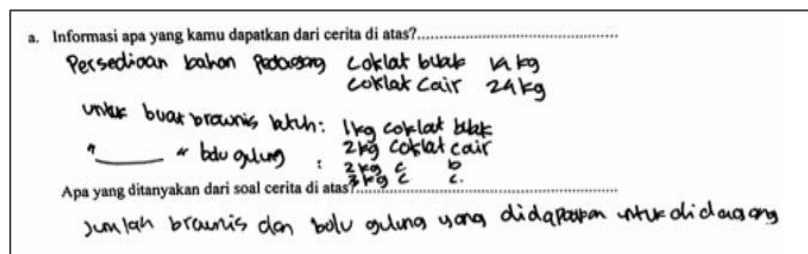 a. Informasi apa yang kamu dapatkan dari cerita di atas?
Persediaan bahan Pedagang coklat bubuk 14 kg
coklat cair 24 kg
untuk buat brownis butuh: 1kg coklat bubuk
2 kg coklat cair
"_____" bolu gulung : 2 kg c b
3 kg c c.
Apa yang ditanyakan dari soal cerita di atas?
Jumlah brownis dan bolu gulung yang didapatkan untuk didagang